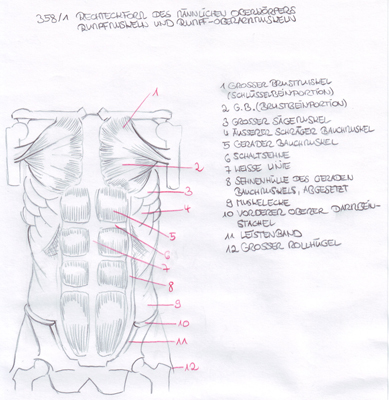 358/1 RECHTECKFORM DES MÄNNLICHEN OBERKÖRPERS
RUMPFMUSKELN UND RUMPF-OBERARMMUSKELN
1 GROSSER BRUSTMUSKEL
(SCHLÜSSELBEINPORTION)
2 G.B. (BRUSTBEINPORTION)
3 GROSSER SÄGEMUSKEL
4 ÄUSSERER SCHRÄGER BAUCHMUSKEL
5 GERADER BAUCHMUSKEL
6 SCHALTSEHNE
7 WEISSE LINIE
8 SEHNENHÜLLE DES GERADEN
BAUCHMUSKELS, ABGESETZT
9 MUSKELECKE
10 VORDERER OBERER DARMBEIN-
STACHEL
11 LEISTENBAND
12 GROSSER ROLLHÜGEL
1
2
3
4
5
6
7
8
9
10
11
12